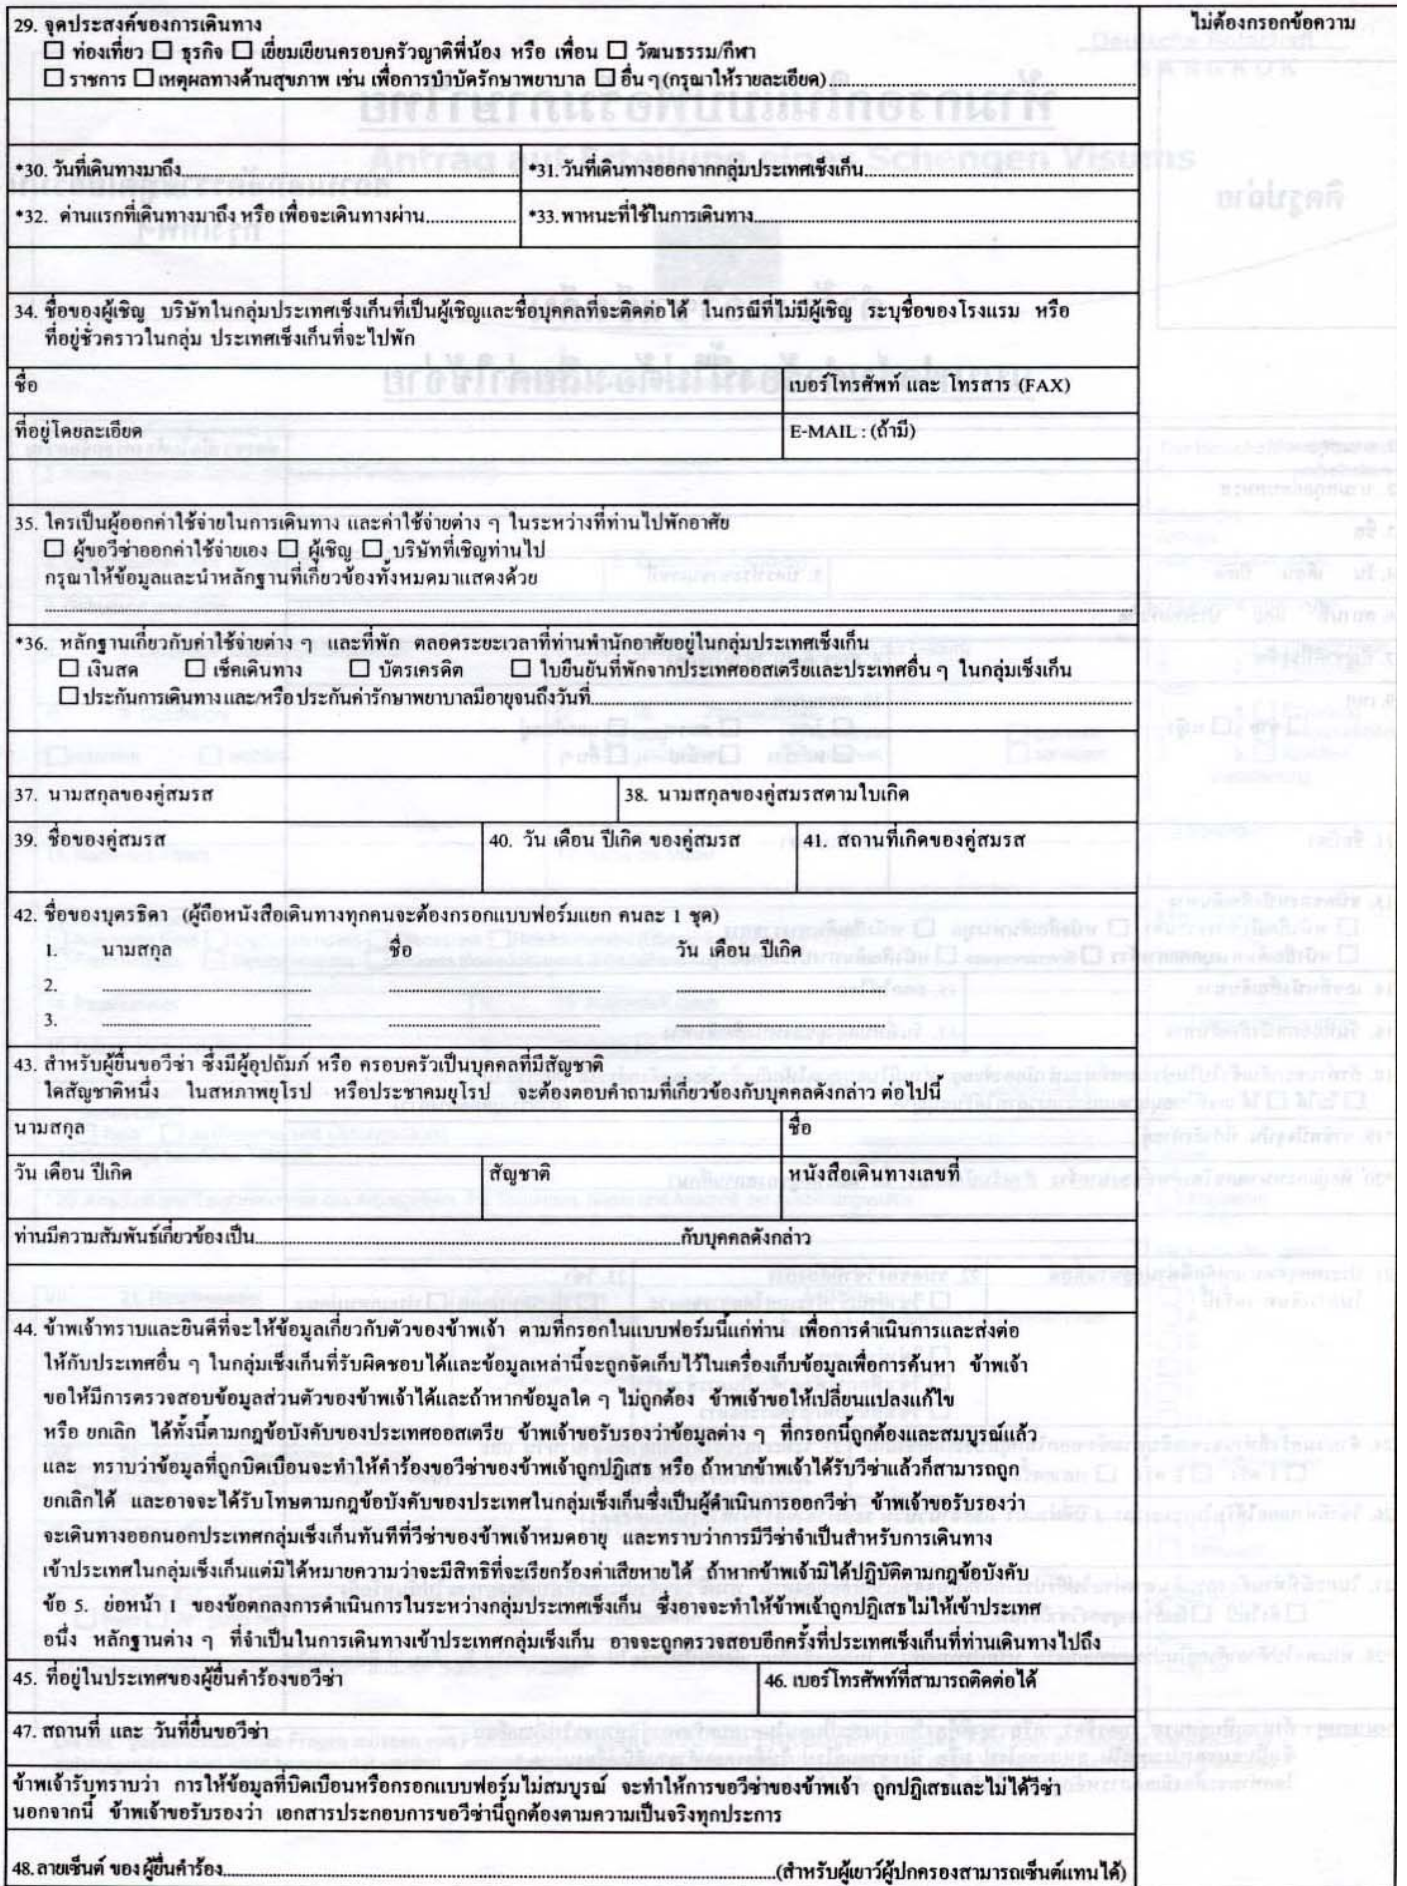 29. จุดประสงค์ของการเดินทาง
☐ ท่องเที่ยว ☐ ธุรกิจ ☐ เยี่ยมเยียนครอบครัวญาติพี่น้อง หรือ เพื่อน ☐ วัฒนธรรม/กีฬา
☐ ราชการ ☐ เหตุผลทางด้านสุขภาพ เช่น เพื่อการบำบัดรักษาพยาบาล ☐ อื่น ๆ (กรุณาให้รายละเอียด)....................
ไม่ต้องกรอกข้อความ
*30. วันที่เดินทางมาถึง....................
*31. วันที่เดินทางออกจากกลุ่มประเทศเช็งเก็น....................
*32. ด่านแรกที่เดินทางมาถึง หรือ เพื่อจะเดินทางผ่าน....................
*33. พาหนะที่ใช้ในการเดินทาง....................
34. ชื่อของผู้เชิญ บริษัทในกลุ่มประเทศเช็งเก็นที่เป็นผู้เชิญและชื่อบุคคลที่จะติดต่อได้ ในกรณีที่ไม่มีผู้เชิญ ระบุชื่อของโรงแรม หรือ
ที่อยู่ชั่วคราวในกลุ่ม ประเทศเช็งเก็นที่จะไปพัก
ชื่อ
เบอร์โทรศัพท์ และ โทรสาร (FAX)
ที่อยู่โดยละเอียด
E-MAIL : (ถ้ามี)
35. ใครเป็นผู้ออกค่าใช้จ่ายในการเดินทาง และค่าใช้จ่ายต่าง ๆ ในระหว่างที่ท่านไปพักอาศัย
☐ ผู้ขอวีซ่าออกค่าใช้จ่ายเอง ☐ ผู้เชิญ ☐ บริษัทที่เชิญท่านไป
กรุณาให้ข้อมูลและนำหลักฐานที่เกี่ยวข้องทั้งหมดมาแสดงด้วย
....................
*36. หลักฐานเกี่ยวกับค่าใช้จ่ายต่าง ๆ และที่พัก ตลอดระยะเวลาที่ท่านพำนักอาศัยอยู่ในกลุ่มประเทศเช็งเก็น
☐ เงินสด ☐ เช็คเดินทาง ☐ บัตรเครดิต ☐ ใบยืนยันที่พักจากประเทศออสเตรียและประเทศอื่น ๆ ในกลุ่มเช็งเก็น
☐ ประกันการเดินทางและ/หรือ ประกันค่ารักษาพยาบาลมีอายุจนถึงวันที่....................
37. นามสกุลของคู่สมรส
38. นามสกุลของคู่สมรสตามใบเกิด
39. ชื่อของคู่สมรส
40. วัน เดือน ปีเกิด ของคู่สมรส
41. สถานที่เกิดของคู่สมรส
42. ชื่อของบุตรธิดา (ผู้ถือหนังสือเดินทางทุกคนจะต้องกรอกแบบฟอร์มแยก คนละ 1 ชุด)
1. นามสกุล ชื่อ วัน เดือน ปีเกิด
2. .................... .................... ....................
3. .................... .................... ....................
43. สำหรับผู้ยื่นขอวีซ่า ซึ่งมีผู้อุปถัมภ์ หรือ ครอบครัวเป็นบุคคลที่มีสัญชาติ
ใดสัญชาติหนึ่ง ในสหภาพยุโรป หรือประชาคมยุโรป จะต้องตอบคำถามที่เกี่ยวข้องกับบุคคลดังกล่าว ต่อไปนี้
นามสกุล
ชื่อ
วัน เดือน ปีเกิด
สัญชาติ
หนังสือเดินทางเลขที่
ท่านมีความสัมพันธ์เกี่ยวข้องเป็น....................กับบุคคลดังกล่าว
44. ข้าพเจ้าทราบและยินดีที่จะให้ข้อมูลเกี่ยวกับตัวของข้าพเจ้า ตามที่กรอกในแบบฟอร์มนี้แก่ท่าน เพื่อการดำเนินการและส่งต่อ
ให้กับประเทศอื่น ๆ ในกลุ่มเช็งเก็นที่รับผิดชอบได้และข้อมูลเหล่านี้จะถูกจัดเก็บไว้ในเครื่องเก็บข้อมูลเพื่อการค้นหา ข้าพเจ้า
ขอให้มีการตรวจสอบข้อมูลส่วนตัวของข้าพเจ้าได้และถ้าหากข้อมูลใด ๆ ไม่ถูกต้อง ข้าพเจ้าขอให้เปลี่ยนแปลงแก้ไข
หรือ ยกเลิก ได้ทั้งนี้ตามกฎข้อบังคับของประเทศออสเตรีย ข้าพเจ้าขอรับรองว่าข้อมูลต่าง ๆ ที่กรอกนี้ถูกต้องและสมบูรณ์แล้ว
และ ทราบว่าข้อมูลที่ถูกบิดเบือนจะทำให้คำร้องขอวีซ่าของข้าพเจ้าถูกปฏิเสธ หรือ ถ้าหากข้าพเจ้าได้รับวีซ่าแล้วก็สามารถถูก
ยกเลิกได้ และอาจจะได้รับโทษตามกฎข้อบังคับของประเทศในกลุ่มเช็งเก็นซึ่งเป็นผู้ดำเนินการออกวีซ่า ข้าพเจ้าขอรับรองว่า
จะเดินทางออกนอกประเทศกลุ่มเช็งเก็นทันทีที่วีซ่าของข้าพเจ้าหมดอายุ และทราบว่าการมีวีซ่าจำเป็นสำหรับการเดินทาง
เข้าประเทศในกลุ่มเช็งเก็นแต่มิได้หมายความว่าจะมีสิทธิที่จะเรียกร้องค่าเสียหายได้ ถ้าหากข้าพเจ้ามิได้ปฏิบัติตามกฎข้อบังคับ
ข้อ 5. ย่อหน้า 1 ของข้อตกลงการดำเนินการในระหว่างกลุ่มประเทศเช็งเก็น ซึ่งอาจจะทำให้ข้าพเจ้าถูกปฏิเสธไม่ให้เข้าประเทศ
อนึ่ง หลักฐานต่าง ๆ ที่จำเป็นในการเดินทางเข้าประเทศกลุ่มเช็งเก็น อาจจะถูกตรวจสอบอีกครั้งที่ประเทศเช็งเก็นที่ท่านเดินทางไปถึง
45. ที่อยู่ในประเทศของผู้ยื่นคำร้องขอวีซ่า
46. เบอร์โทรศัพท์ที่สามารถติดต่อได้
47. สถานที่ และ วันที่ยื่นขอวีซ่า
ข้าพเจ้ารับทราบว่า การให้ข้อมูลที่บิดเบือนหรือกรอกแบบฟอร์มไม่สมบูรณ์ จะทำให้การขอวีซ่าของข้าพเจ้า ถูกปฏิเสธและไม่ได้วีซ่า
นอกจากนี้ ข้าพเจ้าขอรับรองว่า เอกสารประกอบการขอวีซ่านี้ถูกต้องตามความเป็นจริงทุกประการ
48. ลายเซ็นต์ ของ ผู้ยื่นคำร้อง....................(สำหรับผู้เยาว์ผู้ปกครองสามารถเซ็นต์แทนได้)